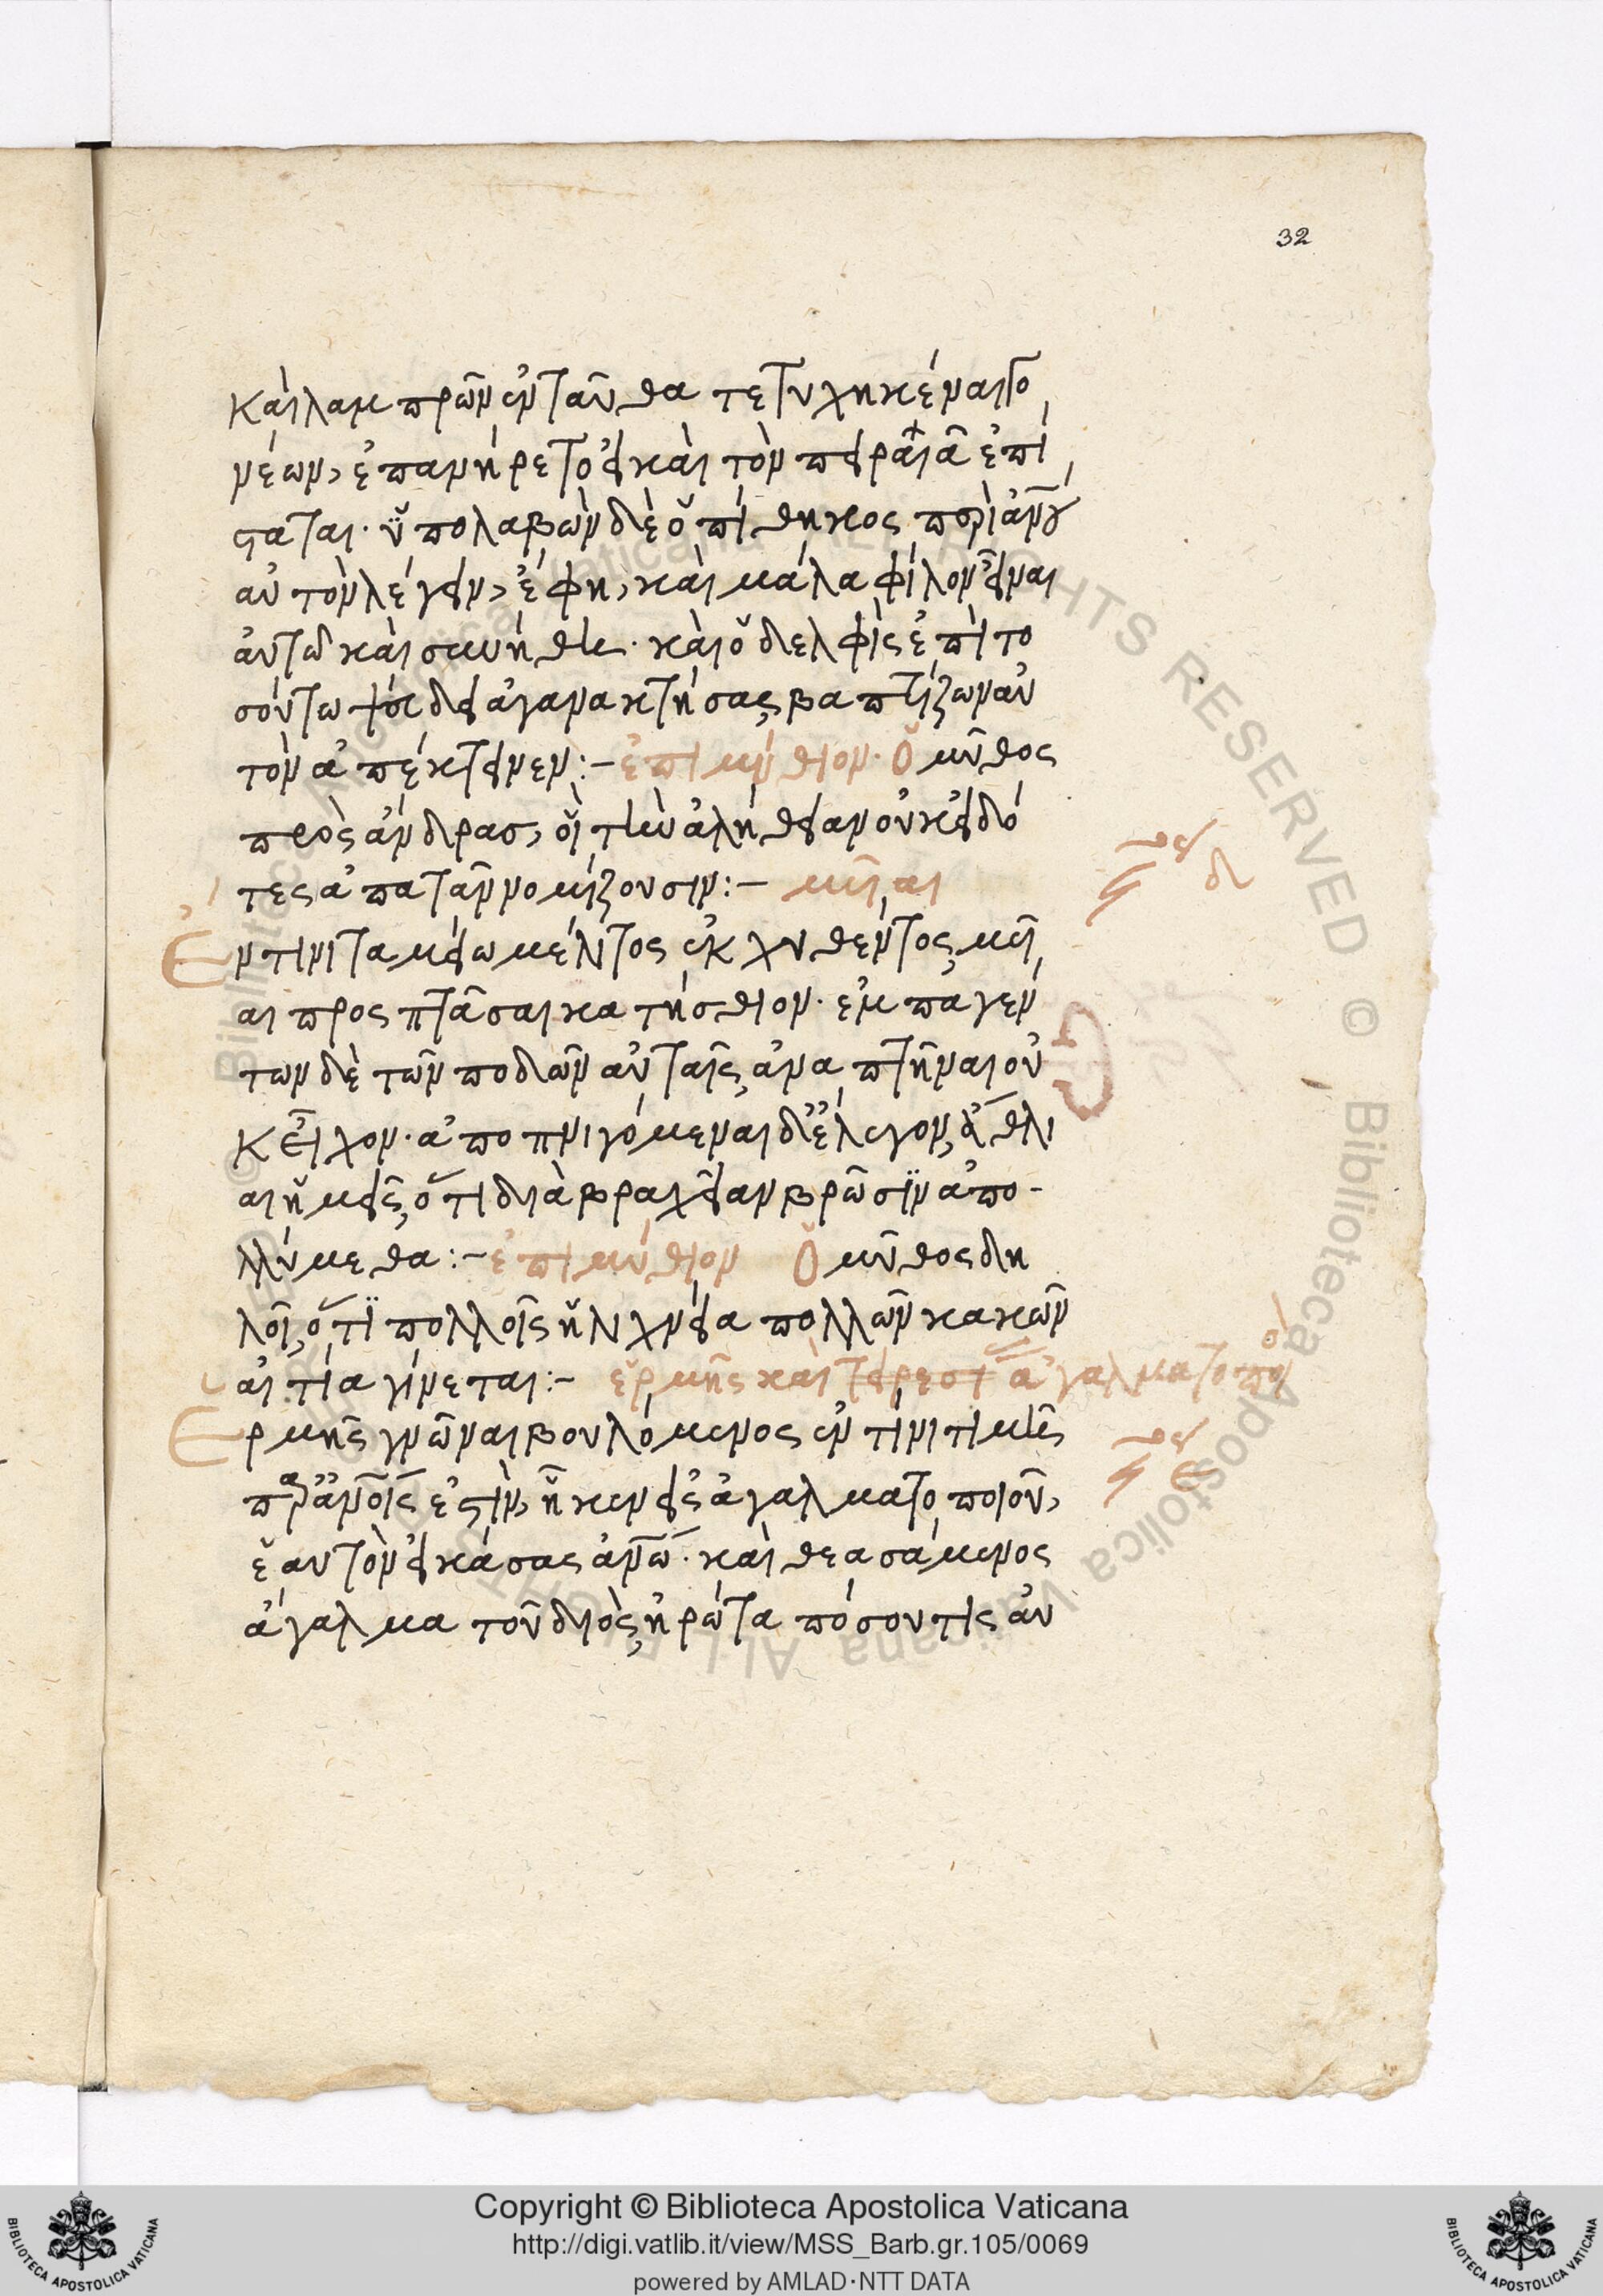 32
καὶ λαμπρῶν ἐνταῦθα τετυχηκέναι γο
νέων, ἐπανήρετο εἰ καὶ τὸν πειραιᾶ ἐπί
σταται. ὑπολαβὼν δὲ ὁ πίθηκος περὶ ἀνου
αὐτὸν λέγειν, ἔφη, καὶ μάλα φίλον εἶναι
αὐτῶ καὶ συνήθη. καὶ ὁ δελφὶς ἐπὶ το
σούτω ψεύδει ἀγανακτήσας, βαπτίζων αὐ
τὸν ἀπέκτεινεν:- ἐπιμύθιον. Ὁ μῦθος
πρὸς ἄνδρασ, οἳ τὴν ἀλήθειαν οὐκ εἰδό
τες ἀπατᾶν νομίζουσιν:- μυῖαι
μῦθος δ
Ἔν τινι ταμείω μέλιτος ἐκχυθέντος, μυῖ
αι προσπτᾶσαι κατήσθιον. ἐμπαγέν
των δὲ τῶν ποδῶν αὐταῖς, ἀναπτῆναι οὐ
κ εἶχον. ἀποπνιγόμεναι δ' ἔλεγον, ἄθλι
αι ἡμεῖς, ὅτι διὰ βραχεῖαν βρῶσιν ἀπο-
λλύμεθα:- ἐπιμύθιον Ὁ μῦθος δη
λοῖ, ὅτι πολλοῖς ἡ λιχνεία πολλῶν κακῶν
αἰτία γίνεται:- ἑρμῆς καὶ ἀγαλματοποιός
μῦθος ε
Ἑρμῆς γνῶναι βουλόμενος ἐν τίνι τιμῆ
παρ' ἀνοις ἐστὶν, ἧκεν εἰς ἀγαλματοποιοῦ,
ἑαυτὸν εἰκάσας ἀνω. καὶ θεασάμενος
ἄγαλμα τοῦ διὸς, ἠρώτα πόσου τις αὐ
Copyright © Biblioteca Apostolica Vaticana
http://digi.vatlib.it/view/MSS_Barb.gr.105/0069
powered by AMLAD·NTT DATA